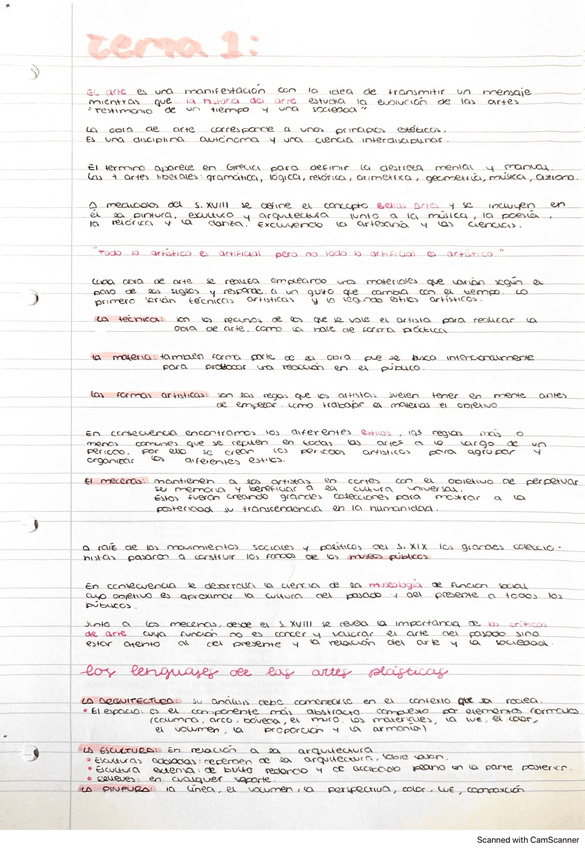 Tema 1:
El arte es una manifestación con la idea de transmitir un mensaje
mientras que la historia del arte estudia la evolución de las artes
"testimonio de un tiempo y una sociedad"
La obra de arte corresponde a unos principios estéticos.
Es una disciplina autónoma y una ciencia interdisciplinar.
El termino aparece en Grecia para definir la destreza mental y manual
Las 7 artes liberales: gramática, lógica, retórica, aritmética, geometría, música, astrono.
A mediados del S. XVIII se define el concepto Bellas Artes y se incluyen en
él la pintura, escultura y arquitectura junto a la música, la poesía,
la retórica y la danza. Excluyendo la artesanía y las ciencias.
"Todo lo artístico es artificial pero no todo lo artificial es artístico"
Cada obra de arte se realiza empleando unos materiales que varían según el
paso de los siglos y responde a un gusto que cambia con el tiempo. Lo
primero serían técnicas artísticas y lo segundo estilos artísticos.
La técnica: son los recursos de los que se vale el artista para realizar la
obra de arte. como la hace de forma práctica
La materia: también forma parte de la obra que se busca intencionalmente
para provocar una reacción en el público.
Las formas artísticas: son las reglas que los artistas suelen tener en mente antes
de empezar. como trabajar el material el objetivo
En consecuencia encontramos los diferentes estilos, las reglas más o
menos comunes que se repiten en todas las artes a lo largo de un
período. Por ello se crean los períodos artísticos para agrupar y
organizar los diferentes estilos.
El mecenas: mantienen a los artistas en cortes con el objetivo de perpetuar
su memoria y beneficiar a la cultura universal.
Estos fueron creando grandes colecciones para mostrar a la
posteridad su transcendencia en la humanidad.
A raíz de los movimientos sociales y políticos del S. XIX los grandes coleccio-
nistas pasaron a constituir los fondos de los museos públicos
En consecuencia se desarrolla la ciencia de la museología de función social
cuyo objetivo es aproximar la cultura del pasado y del presente a todos los
públicos.
Junto a los mecenas, desde el S. XVIII se revela la importancia de los críticos
de arte cuya función no es conocer y valorar el arte del pasado sino
estar atento al del presente y la relación del arte y la sociedad.
los lenguajes de las artes plásticas
La ARQUITECTURA: su análisis debe comprenderse en el contexto que la rodea.
• El espacio: es el componente más abstracto compuesto por elementos formales
(columna, arco, bóveda, el muro, los materiales, la luz, el color,
el volumen, la proporción y la armonía)
La ESCULTURA: En relación a la arquitectura
• Esculturas adosadas: dependen de la arquitectura,
• Escultura externa: de bulto redondo y de acabado plano en la parte posterior.
• Relieves: en cualquier soporte.
La PINTURA: la línea, el volumen, la perspectiva, color, luz, composición
Scanned with CamScanner